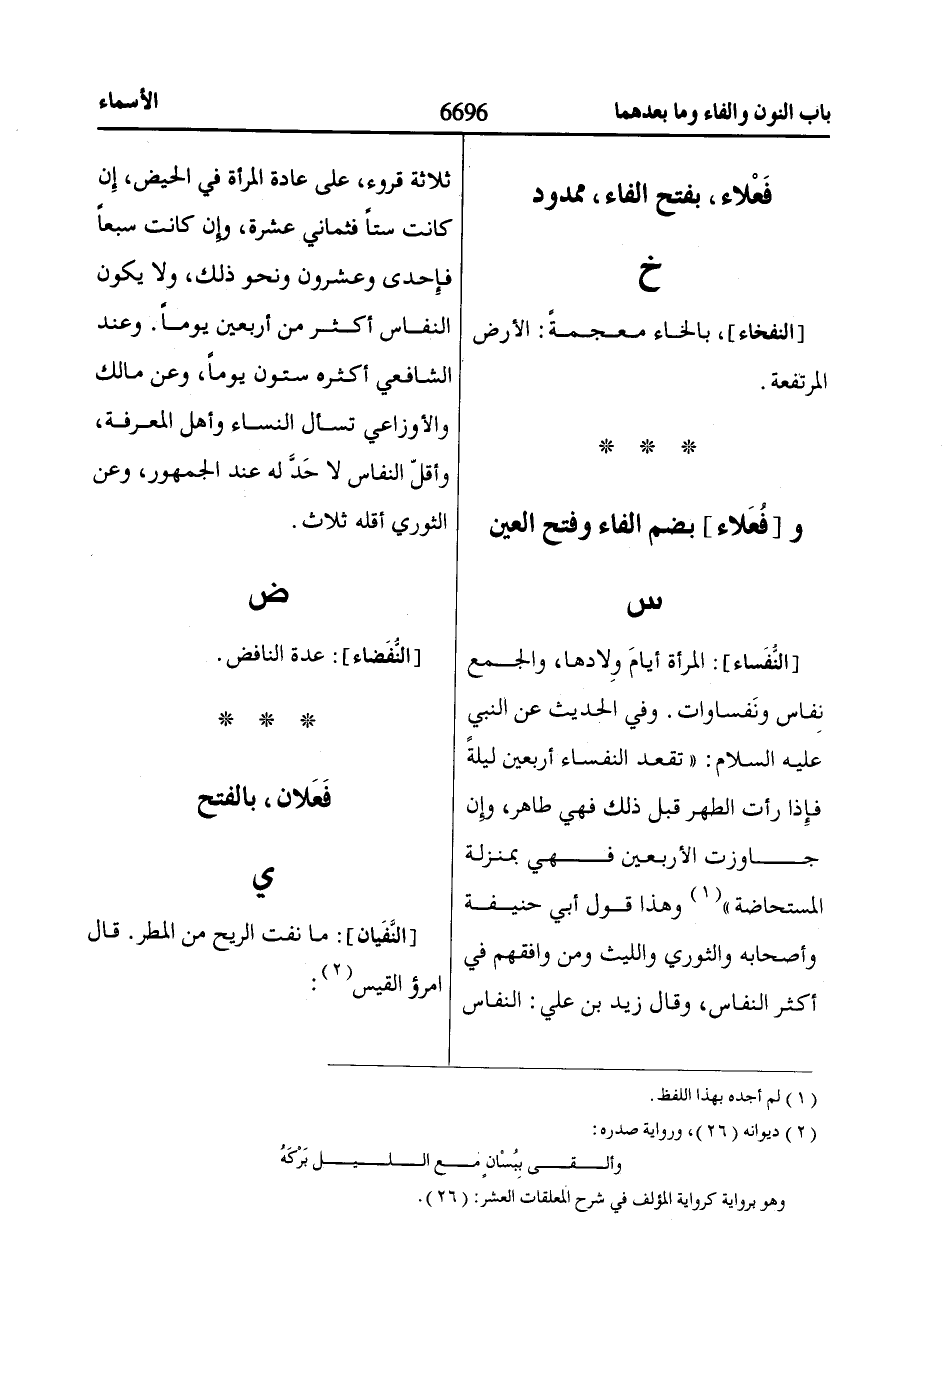 باب النون والفاء وما بعدهما
6696
الأسماء
فَعْلاء، بفتح الفاء، ممدود
خ
[النفخاء]، بالخاء معجمةً: الأرض
المرتفعة.
* * *
و [فُعَلاء] بضم الفاء وفتح العين
س
[النُّفَساء]: المرأة أيامَ وِلادها، والجمع
نِفاس ونَفساوات. وفي الحديث عن النبي
عليه السلام: « تقعد النفساء أربعين ليلةً
فإذا رأت الطهر قبل ذلك فهي طاهر، وإن
جاوزت الأربعين فهي بمنزلة
المستحاضة »(١) وهذا قول أبي حنيفة
وأصحابه والثوري والليث ومن وافقهم في
أكثر النفاس، وقال زيد بن علي: النفاس
ثلاثة قروء، على عادة المرأة في الحيض، إن
كانت ستاً فثماني عشرة، وإن كانت سبعاً
فإحدى وعشرون ونحو ذلك، ولا يكون
النفاس أكثر من أربعين يوماً. وعند
الشافعي أكثره ستون يوماً، وعن مالك
والأوزاعي تسأل النساء وأهل المعرفة،
وأقلّ النفاس لا حَدَّ له عند الجمهور، وعن
الثوري أقله ثلاث.
ض
[النُّفَضاء]: عدة النافض.
* * *
فَعَلان، بالفتح
ي
[النَّفَيان]: ما نفت الريح من المطر. قال
امرؤ القيس(٢):
(١) لم أجده بهذا اللفظ.
(٢) ديوانه (٢٦)، ورواية صدره:
وألقى بِبُسْانٍ مع الليل بَرْكَهُ
وهو برواية كرواية المؤلف في شرح المعلقات العشر: (٢٦).